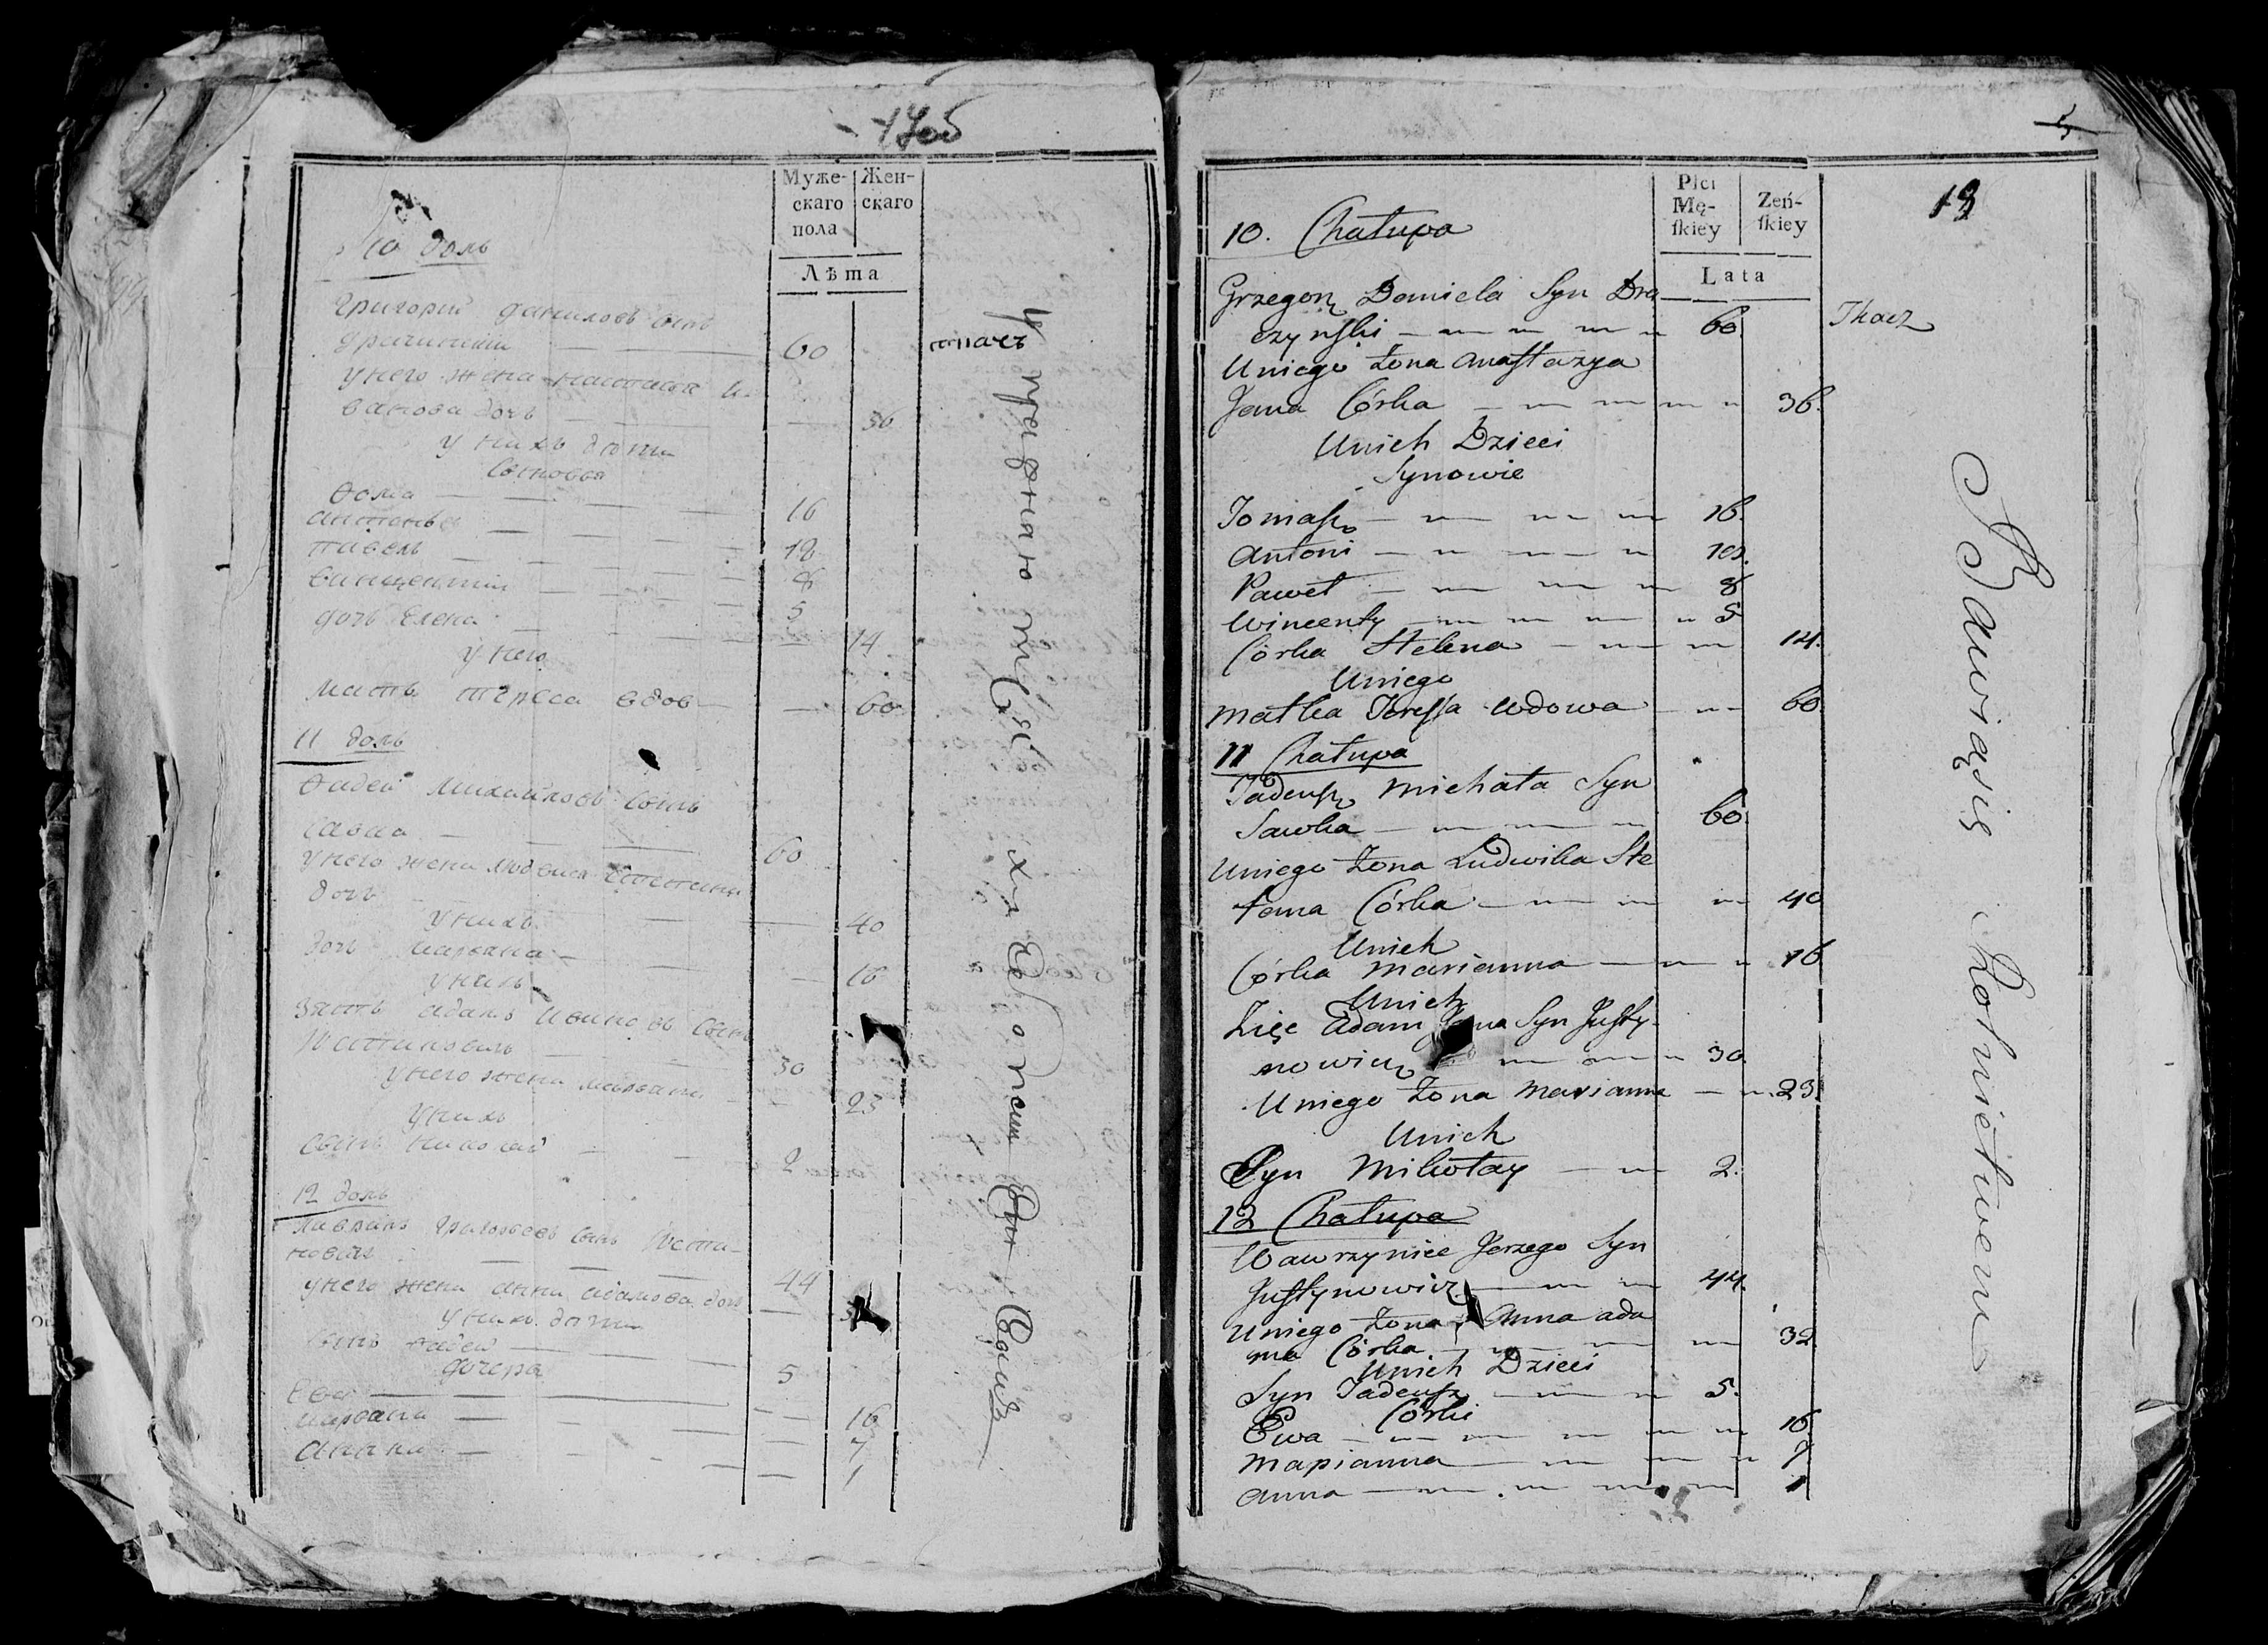 1706
Муже-
скаго
пола
Жен-
скаго
Лѣта
10 домъ
Григорий Даниловъ сынъ
Драчинский 60 ткачъ
у него жена Настасья И-
ванова дочь 36
у нихъ дѣти
Сыновья
Фома 16
Антоній
Павелъ 8
Винцентий 5
дочь Елена 14
у него
Мать Тереса вдов 60
11 домъ
Фадей Михайловъ сынъ
Савка 60
у него жена Людвика Степанова
дочь 40
у нихъ
дочь Марьяна 16
у нихъ
зять Адамъ Ивановъ сынъ
Юстиновичъ 30
у него жена Марьяна 23
у нихъ
сынъ Николай 2
12 домъ
Лавринъ Григорьевъ сынъ Юсти-
новичъ 44
у него жена Анна Адамова дочь
у нихъ дѣти
сынъ Фадей 5
дочери
Ева 16
Марьяна 7
Анна 1
Упражняются въ хлѣбопашествѣ
5
Płci
Mę-
ſkiey
Żeń-
ſkiey
Lata
18
10. Chałupa
Grzegorz Daniela Syn Dra
czyński 60. Tkacz
Uniego żona Anastazya
Jana Córka 36.
Unich Dzieci
Synowie
Tomasz 16.
Antoni 10.
Paweł 8
Wincenty 5
Córka Helena 14.
Uniego
Matka Teressa Wdowa 60.
11 Chałupa
Tadeusz Michała Syn
Sawka 60.
Uniego żona Ludwika Ste
fana Córka 40
Unich
Córka Marianna 16
Unich
Zięć Adam Jana Syn Justy-
nowicz 30.
Uniego żona Marianna 23.
Unich
Syn Mikołay 2.
12 Chałupa
Wawrzyniec Jerzego Syn
Justynowicz 44.
Uniego żona Anna Ada
ma Córka 32.
Unich Dzieci
Syn Tadeusz 5.
Córki
Ewa 16.
Marianna 7
Anna 1
Bawią się Rolnictwem